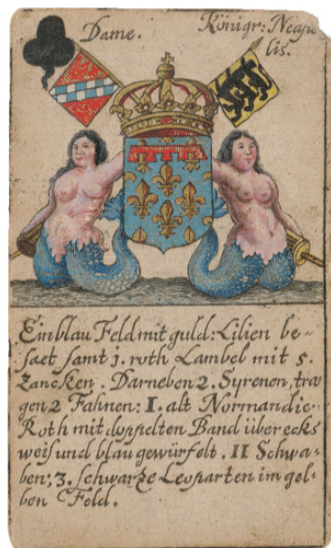 Dame.
Königr: Neapo
lis.
Ein blau Feld mit guld: Lilien be-
säet samt 1. roth Lambel mit 5.
Zancken. Darneben 2. Syrenen, tra
gen 2 Fahnen: I. alt Normandie
Roth mit doppelten Band über ecks
weis und blau gewürfelt. II Schwa-
ben; 3. schwartze Leoparten im gel-
ben Feld.